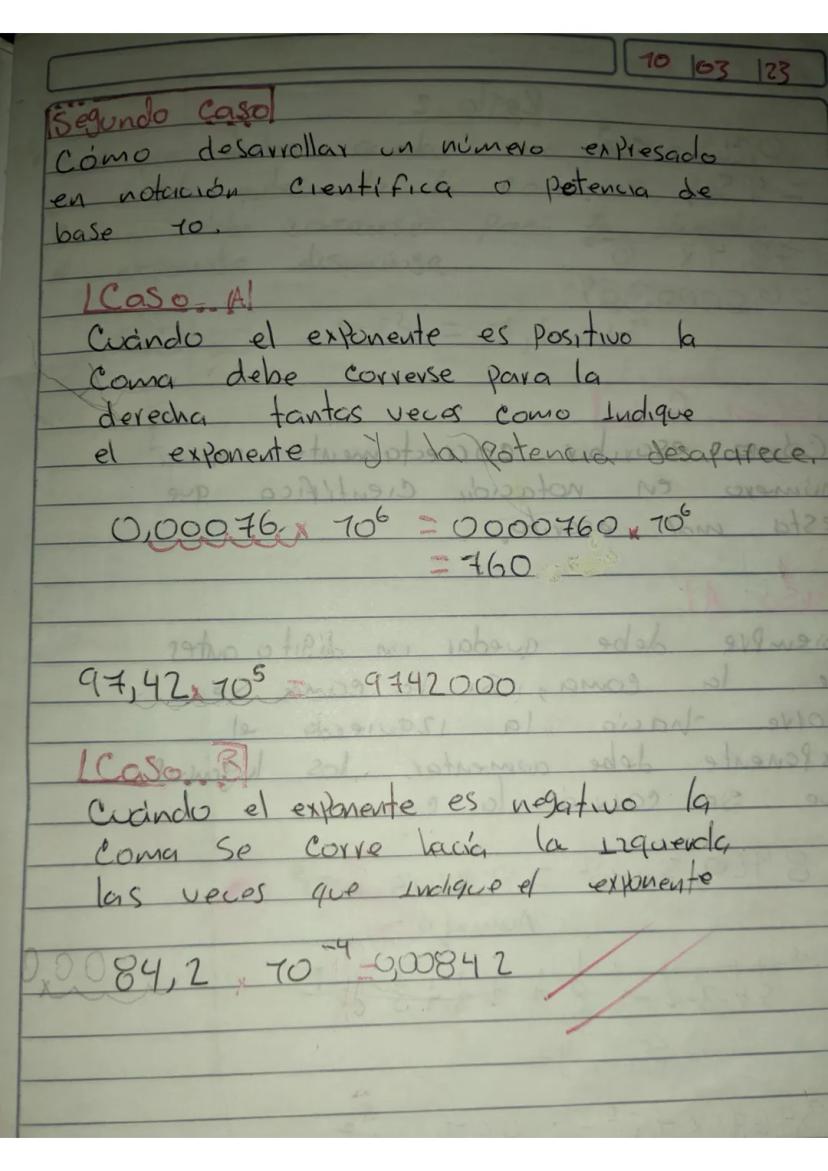 10 /03 /23
Segundo Caso
Cómo desarrollar un número expresado
en notación Científica o potencia de
base 10.
Caso.. A
Cuándo el exponente es positivo la
Coma debe correrse para la
derecha tantas veces como Indique
el exponente y la potencia desaparece.
0,00076 x 10⁶ = 0000760 x 10⁶
= 760
97,42 x 10⁵ = 9742000
Caso.. B
Cuándo el exponente es negativo la
Coma Se Corre hacía la izquerda
las veces que indique el exponente
0,0084,2 x 10⁻⁴ = 0,00842